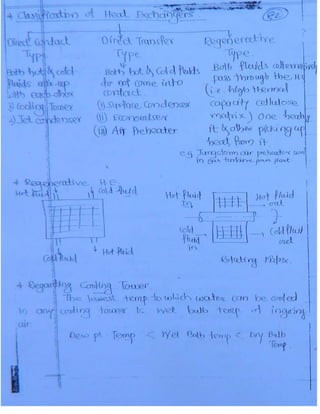 * Classification of Heat Exchangers
Direct Contact Type
Both hot & cold fluids mix up with each other
i) Cooling Tower
ii) Jet condenser
Direct Transfer Type
Both hot & Cold fluids do not come into contact
(i) Surface Condenser
(ii) Economiser
(iii) Air Preheater
Regenerative Type
Both fluids alternatively pass through the H.E
(i.e. high thermal capacity cellulose matrix) one heating it & other picking up heat from it
e.g. Jungstrom air preheater used in Gas turbine power plant
* Regenerative H.E.
Hot fluid
Cold fluid
Cold fluid
Hot fluid
Hot fluid In
Hot fluid out
Cold fluid in
Cold fluid out
Rotating Matrix
* Regarding Cooling Tower
The lowest temp to which water can be cooled
in any cooling tower is wet bulb temp of ingoing
air
Dew pt. Temp < Wet Bulb temp < Dry Bulb Temp.